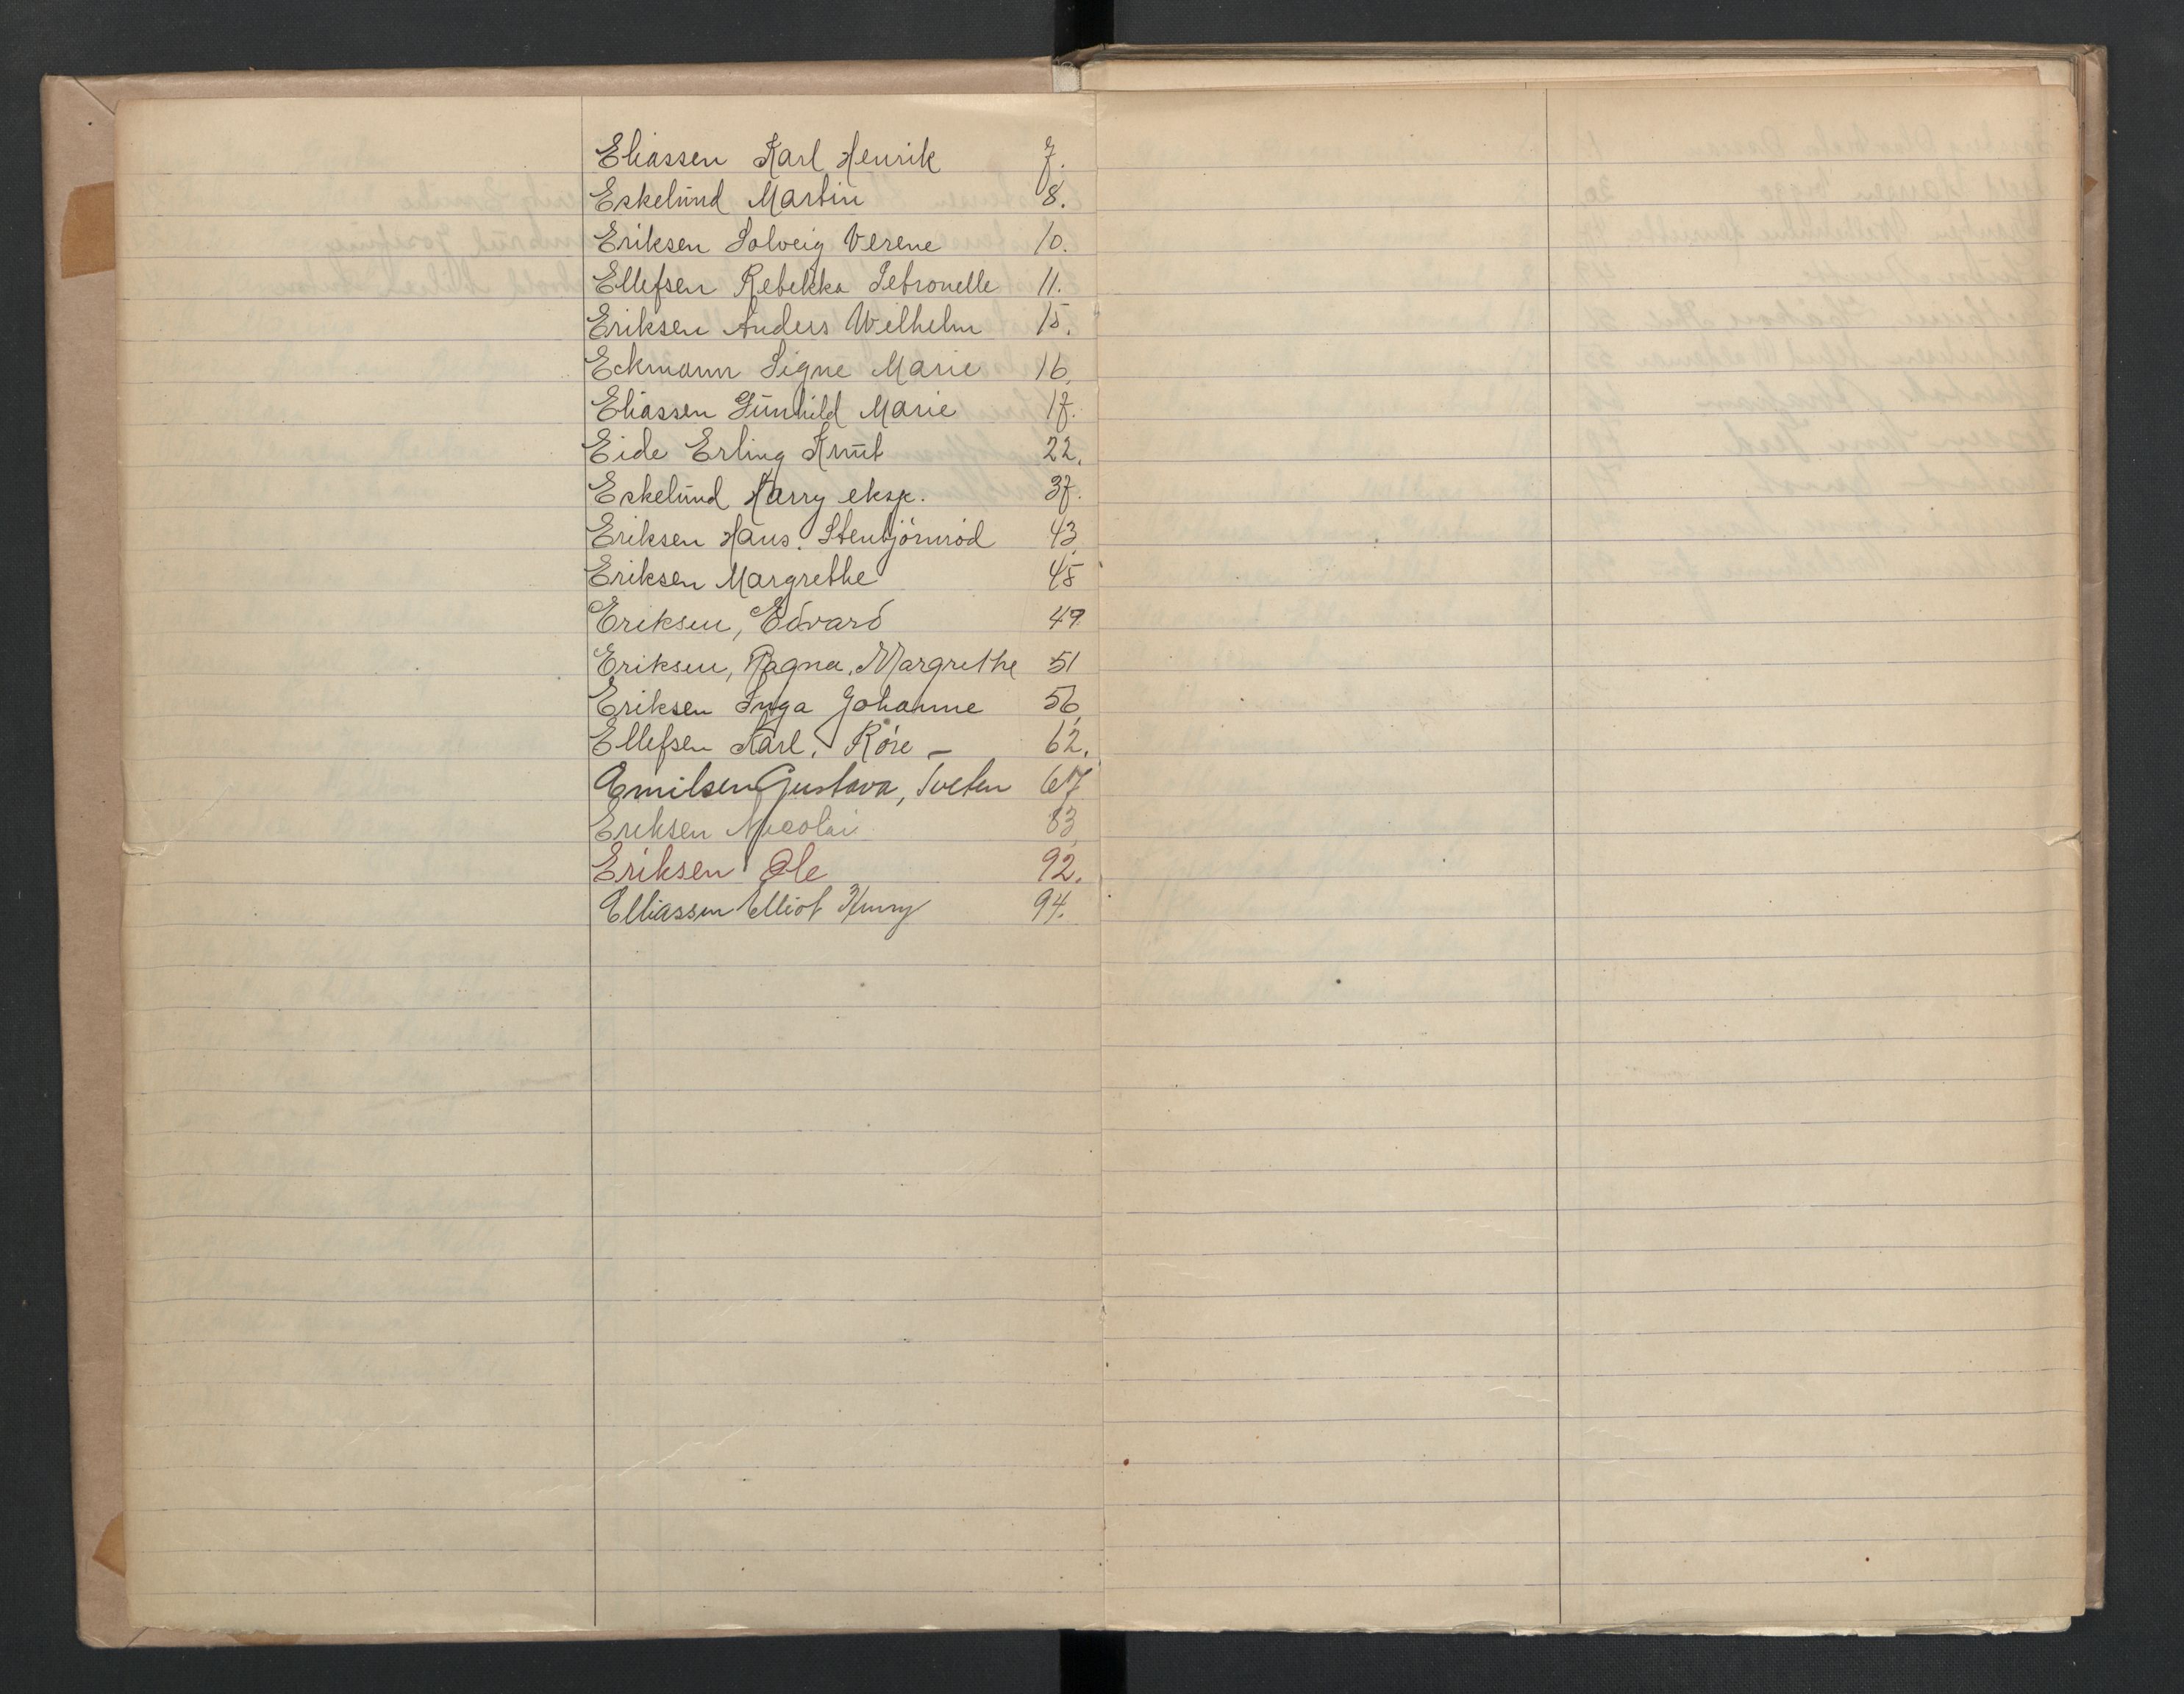 Eliassen Karl Henrik 7.
Eskelund Martin 8.
Eriksen Solveig Verene 10.
Ellefsen Rebekka Petronelle 11.
Eriksen Anders Wilhelm 15.
Eckmann Signe Marie 16.
Eliassen Gunhild Marie 17.
Eide Erling Knut 22.
Eskelund Harry eksp. 37.
Eriksen Hans. Stenbjörnröd 43.
Eriksen Margrethe 45
Eriksen, Edvard 49
Eriksen, Ragna, Margrethe 51
Eriksen Inga Johanne 56.
Ellefsen Karl, Röre – 62.
Emilsen Gustava, Tveten 67
Eriksen Nicolai 83
Eriksen Ole 92.
Elliassen Elliot Henry 94.